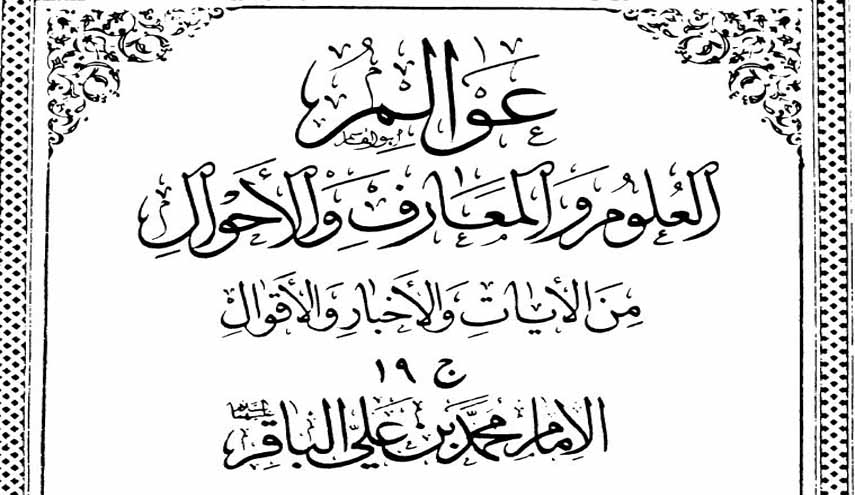 عَوَالِمُ
العُلُومِ وَالمَعَارِفِ وَالأَحْوَالِ
مِنَ الآيَاتِ وَالأَخْبَارِ وَالأَقْوَالِ
ج ١٩
الإمام محمّد بن عليّ الباقر